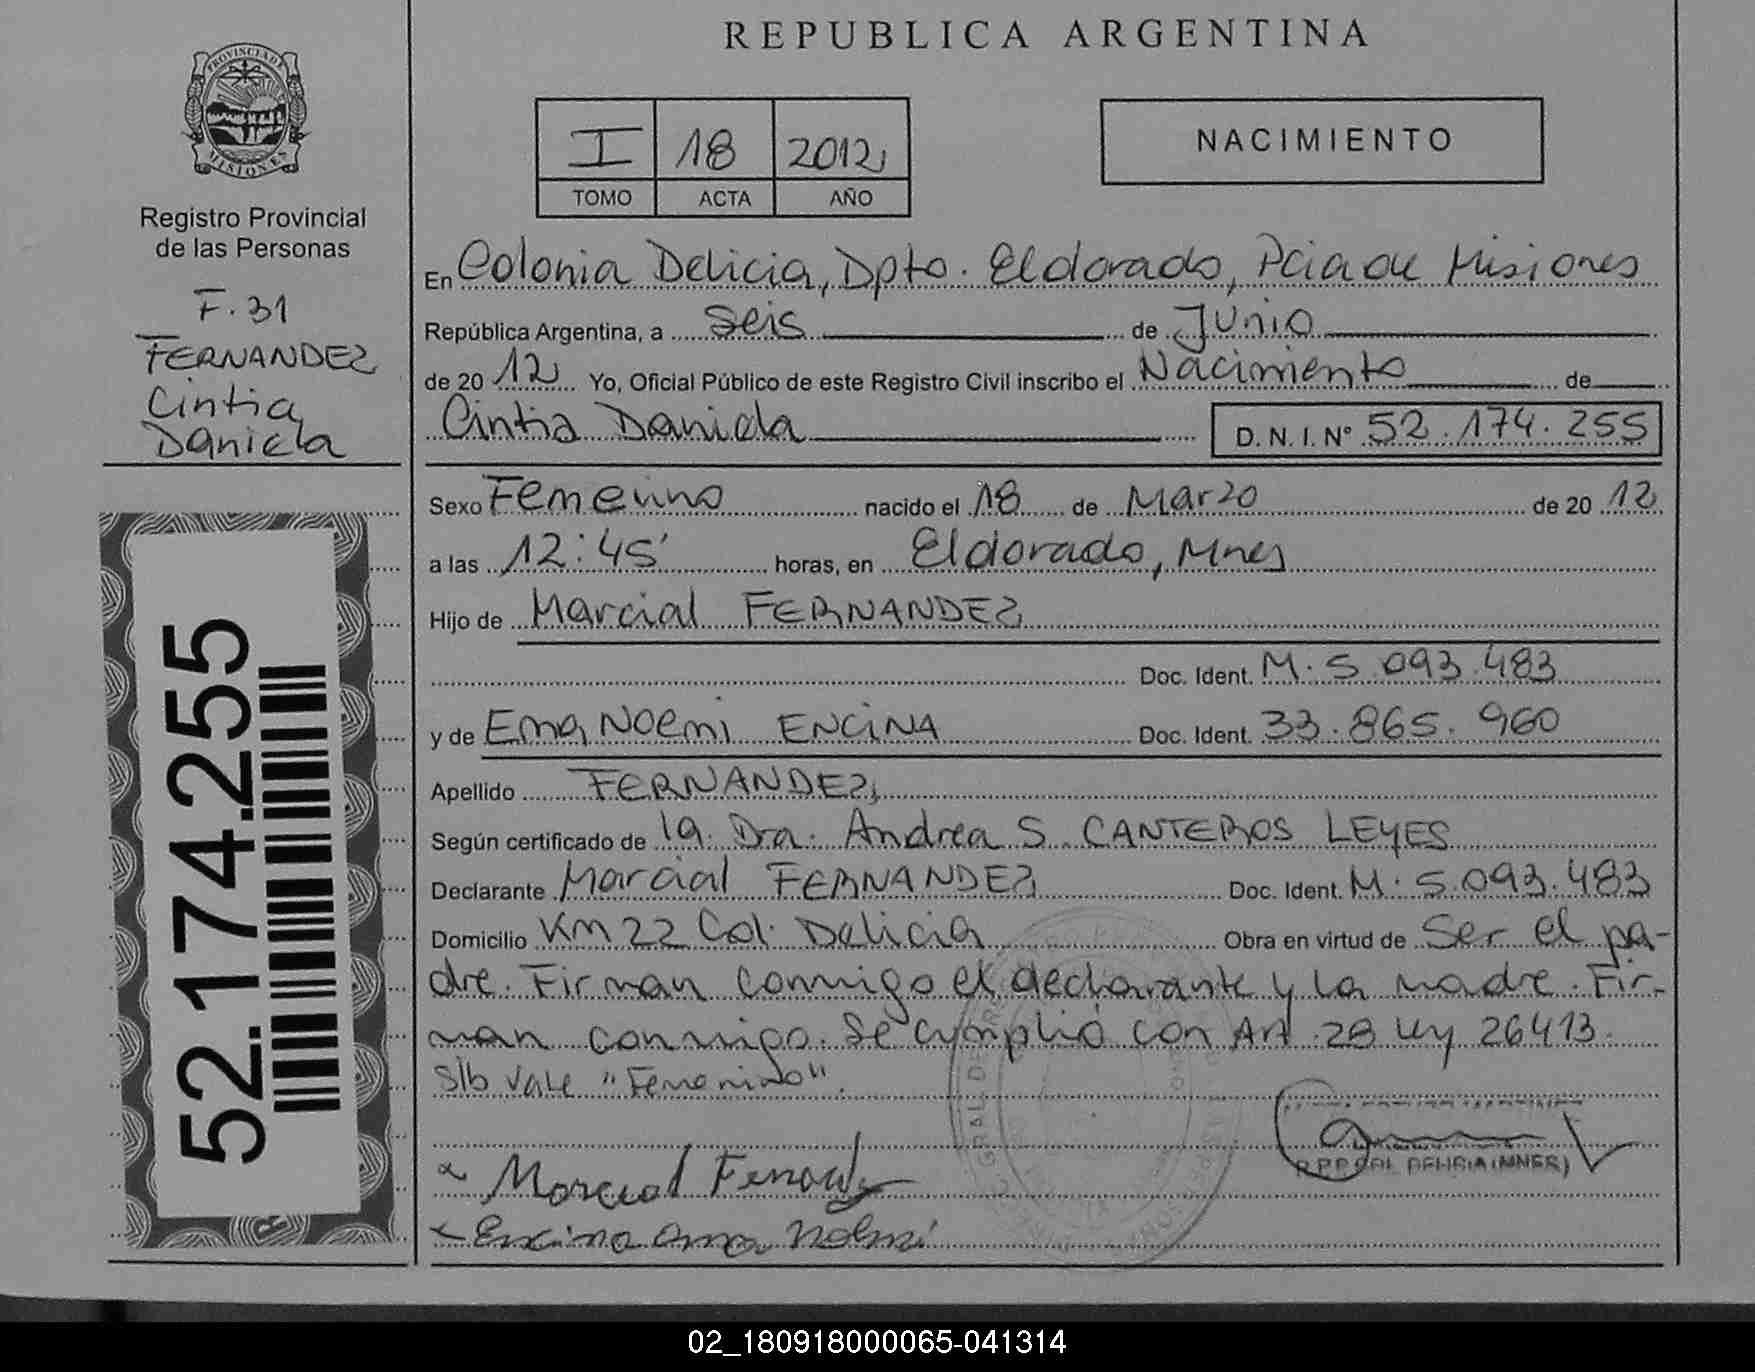 REPUBLICA ARGENTINA
PROVINCIA DE
MISIONES
Registro Provincial
de las Personas
F. 31
FERNANDEZ
Cintia
Daniela
52.174.255
I 18 2012
TOMO ACTA AÑO
NACIMIENTO
En Colonia Delicia, Dpto. Eldorado, Pcia de Misiones
República Argentina, a seis de Junio
de 20 12 Yo, Oficial Público de este Registro Civil inscribo el Nacimiento de
Cintia Daniela D. N. I. Nº 52.174.255
Sexo Femenino nacido el 18 de Marzo de 20 12
a las 12:45' horas, en Eldorado, Mnes
Hijo de Marcial FERNANDEZ
Doc. Ident. M: 5.093.483
y de Ema Noemi ENCINA Doc. Ident. 33.865.960
Apellido FERNANDEZ
Según certificado de la Dra. Andrea S. CANTEROS LEYES
Declarante Marcial FERNANDEZ Doc. Ident. M: 5.093.483
Domicilio Km 22 Col. Delicia Obra en virtud de Ser el pa-
dre. Firman conmigo el declarante y la madre. Fir-
man conmigo. Se cumplió con Art 28 Ley 26413.
S/b Vale "Femenino".
Marcial Fernandez
Encina Ema Noemi
02_180918000065-041314